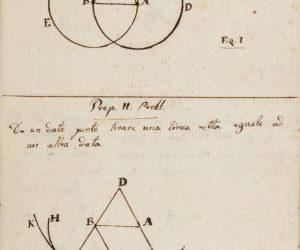 B A
E D
Fig. I
Prop. II. Probl.
Da un dato punto tirare una linea retta uguale ad
un altra data
D
K H B A